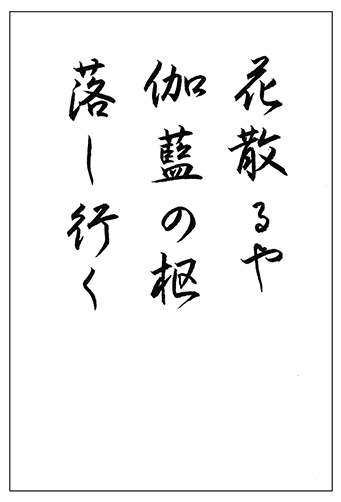 花散るや
伽藍の枢
落し行く